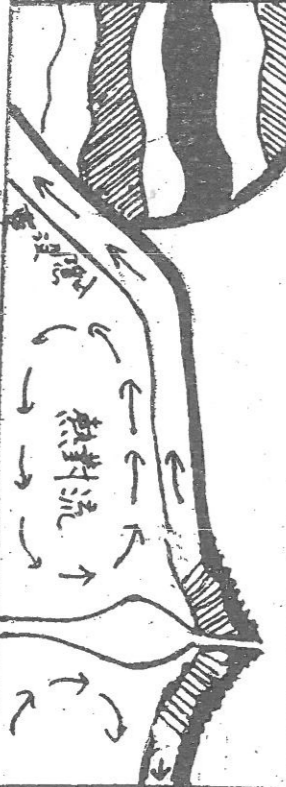 隱沒帶
熱對流